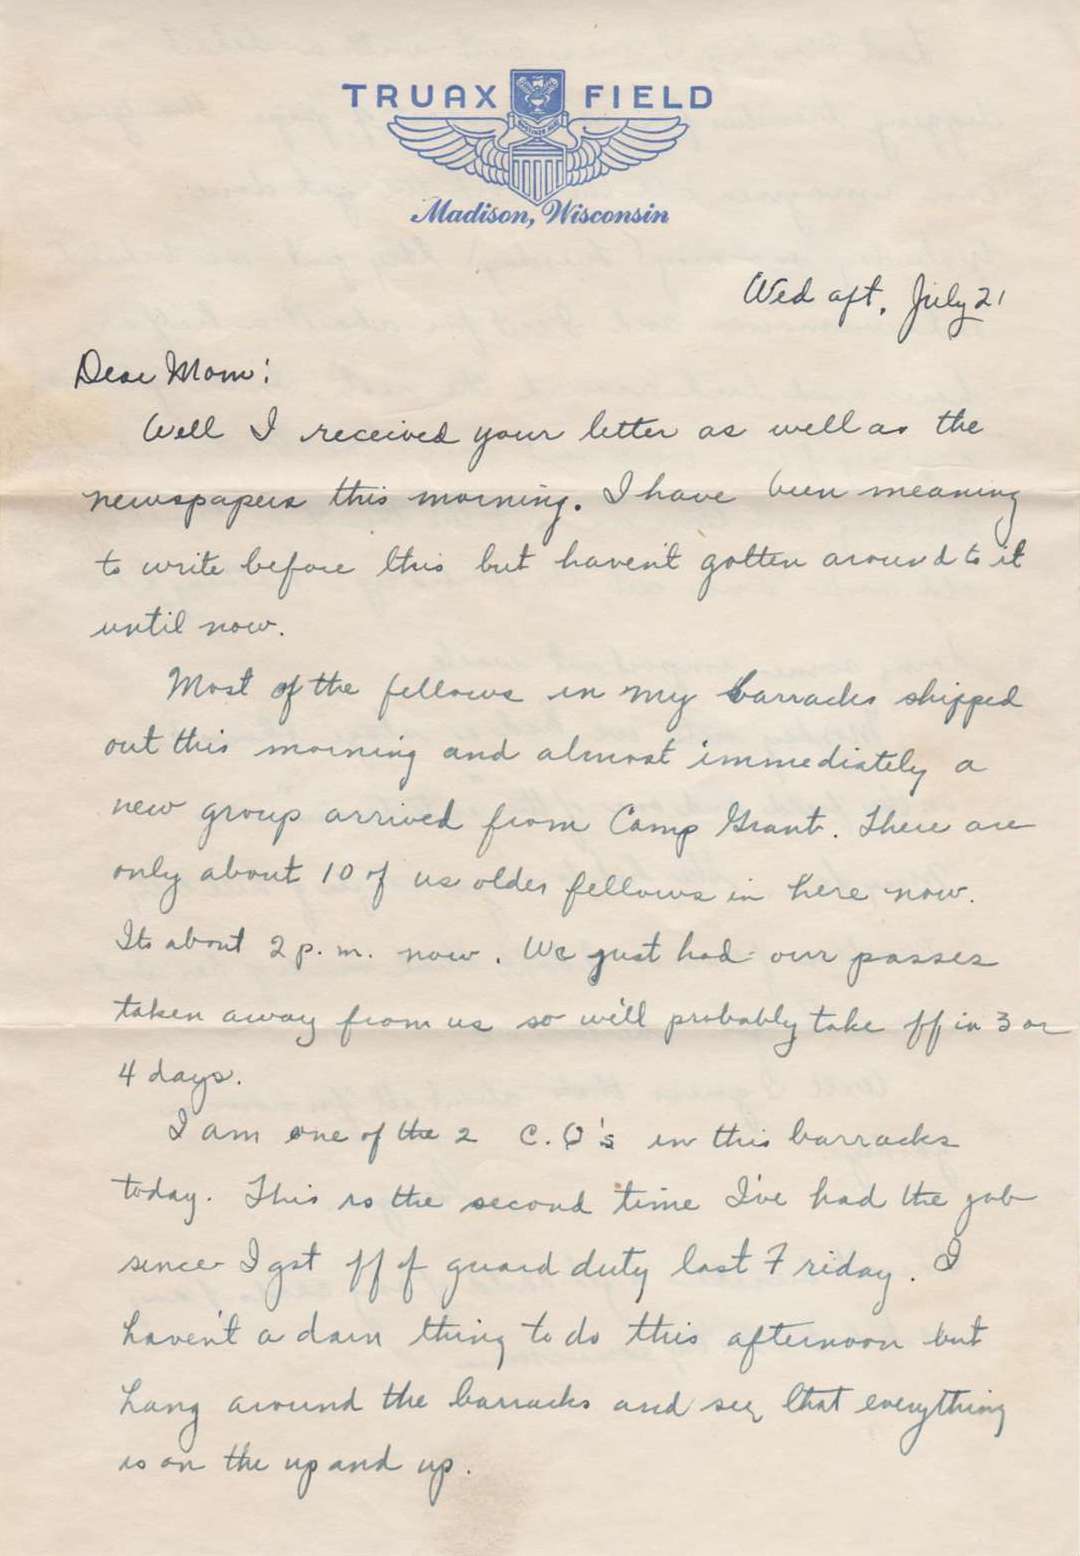 TRUAX FIELD
Madison, Wisconsin
Wed aft, July 21
Dear Mom:
Well I received your letter as well as the
newspapers this morning. I have been meaning
to write before this but haven't gotten around to it
until now.
Most of the fellows in my barracks shipped
out this morning and almost immediately a
new group arrived from Camp Grant. There are
only about 10 of us older fellows in here now.
Its about 2 p.m. now. We just had our passes
taken away from us so we'll probably take off in 3 or
4 days.
I am one of the 2 C.Q's in this barracks
today. This is the second time I've had the job
since I got off of guard duty last Friday. I
haven't a darn thing to do this afternoon but
hang around the barracks and see that everything
is on the up and up.